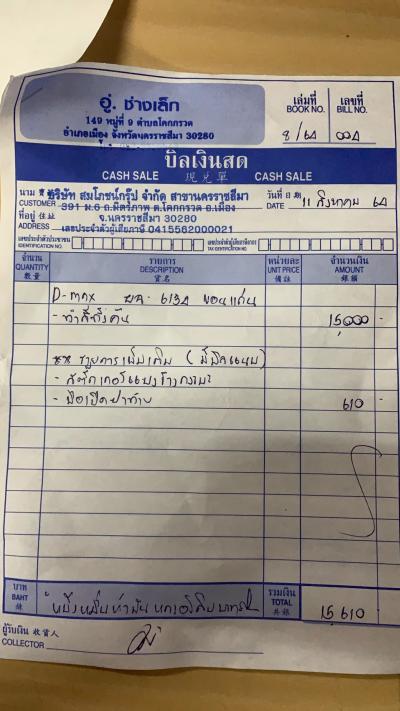 อู่. ช่างเล็ก
149 หมู่ที่ 9 ตำบลโคกกรวด
อำเภอเมือง จังหวัดนครราชสีมา 30280
เล่มที่ เลขที่
BOOK NO. BILL NO.
8/64 004
บิลเงินสด
CASH SALE 現兑單 CASH SALE
นาม บริษัท สมโภชน์กรุ๊ป จำกัด สาขานครราชสีมา วันที่ 11 สิงหาคม 64
CUSTOMER 391 ม.6 ถ.มิตรภาพ ต.โคกกรวด อ.เมือง
ที่อยู่ จ.นครราชสีมา 30280
ADDRESS เลขประจำตัวผู้เสียภาษี 0415562000021
เลขประจำตัวประชาชน เลขประจำตัวผู้เสียภาษีอากร
IDENTIFICATION NO. TAX IDENTIFICATION NO.
จำนวน รายการ หน่วยละ จำนวนเงิน
QUANTITY DESCRIPTION UNIT PRICE AMOUNT
數量 貨名 備註 銀額
D-max 6134 ขอนแก่น
- ทำสีทั้งคัน 15,000 -
** รายการเพิ่มเติม (มีบิลแนบ)
- สติ๊กเกอร์
- มือเปิดฝาท้าย 610 -
บาท รวมเงิน
BAHT หนึ่งหมื่นห้าพันหกร้อยสิบบาท TOTAL 15,610 -
銖 共銀
ผู้รับเงิน 收貨人
COLLECTOR